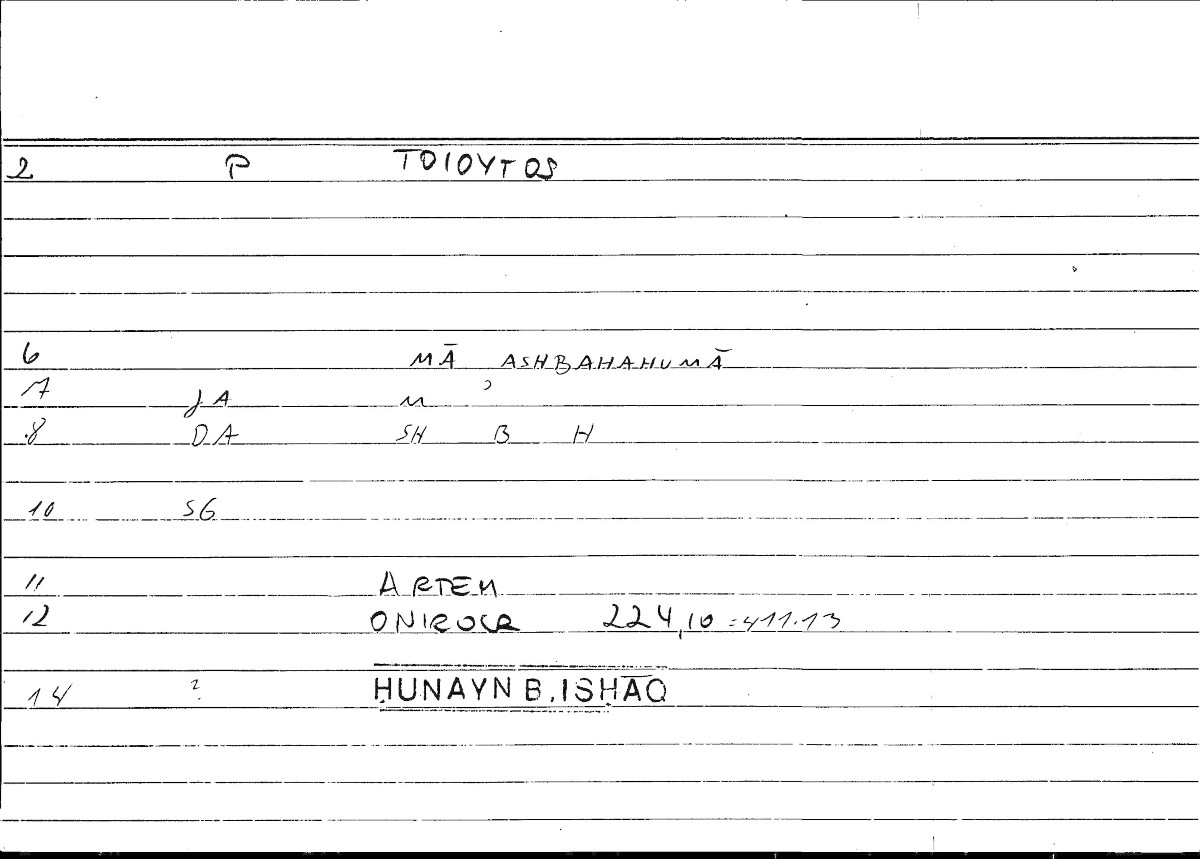 2 P TOIOYTOS
6 MĀ ASHBAHAHUMĀ
7 JA M ʾ
8 DA SH B H
10 SG
11 ARTEM
12 ONIROCR 224,10 = 411.13
14 ? ḤUNAYN B. ISḤĀQ